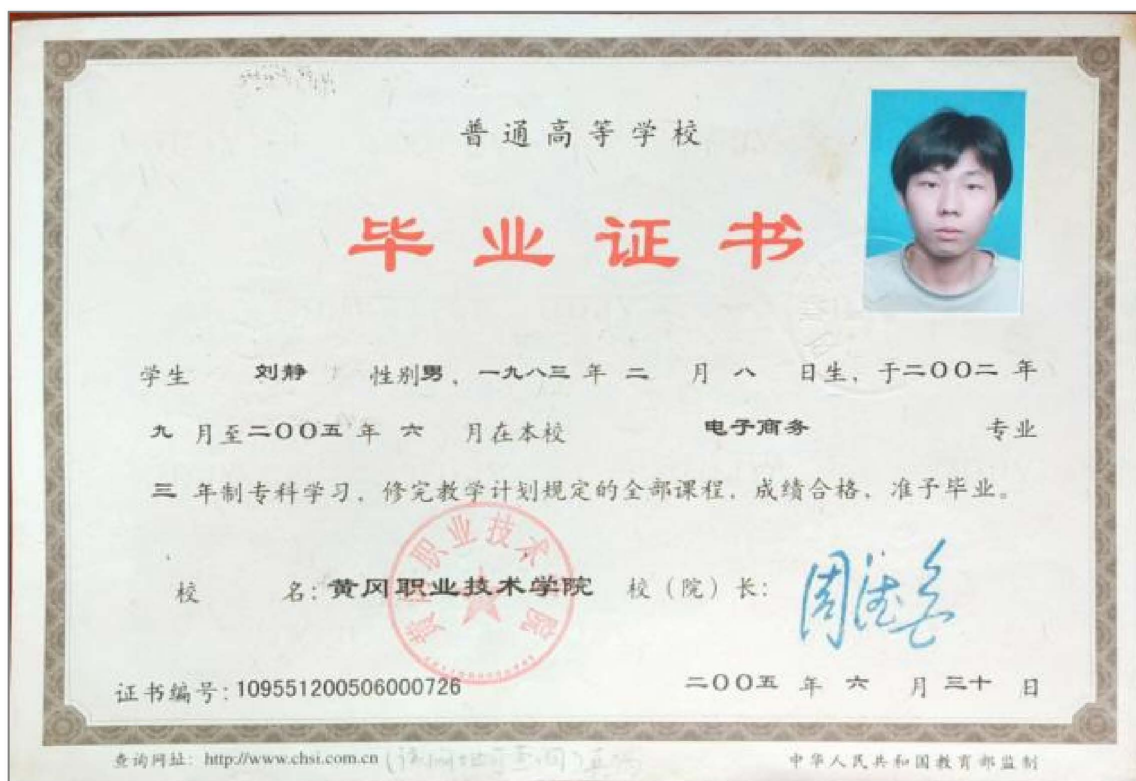 普通高等学校
毕业证书
学生 刘静 性别男、一九八三年二月八日生，于二〇〇二年
九月至二〇〇五年六月在本校 电子商务 专业
三年制专科学习，修完教学计划规定的全部课程，成绩合格，准予毕业。
校 名：黄冈职业技术学院 校（院）长：
黄冈职业技术学院
证书编号：109551200506000726 二〇〇五年六月三十日
查询网址：http://www.chsi.com.cn 中华人民共和国教育部监制